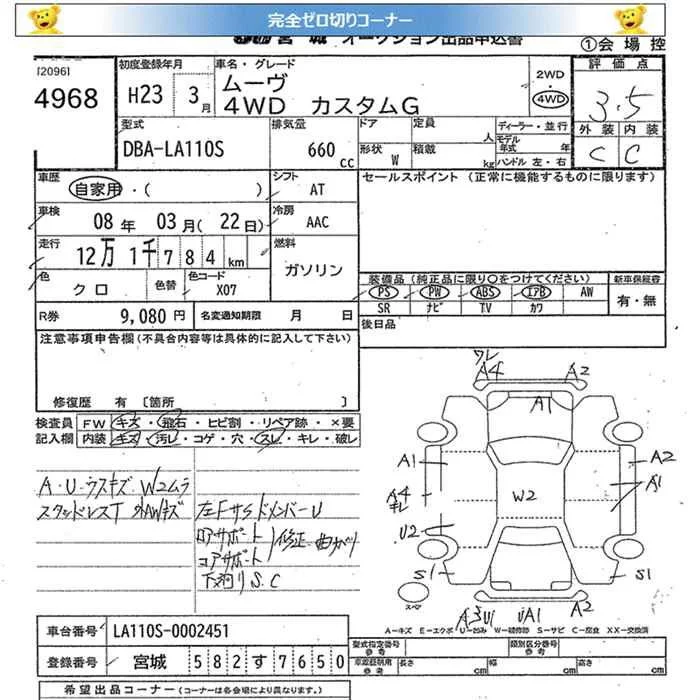 完全ゼロ切りコーナー
宮城 オークション出品申込書
①会場控
120961
4968
初度登録年月
H23 3月
車名・グレード
ムーヴ
4WD カスタムG
2WD
・
4WD
評価点
3.5
外装 内装
C C
型式
DBA-LA110S
排気量
660 cc
ドア
定員 人
形状 W
積載 kg
ディーラー・並行
モデル年式 年
ハンドル 左・右
車歴
自家用・( )
シフト
AT
セールスポイント (正常に機能するものに限ります)
車検
08年 03月(22日)
冷房
AAC
走行
12万1千784km
燃料
ガソリン
色
クロ
色替
色コード
X07
装備品(純正品に限り○をつけてください)
新車保証書
PS PW ABS エアB AW
SR ナビ TV カワ
有・無
R券 9,080円
名変通知期限 月 日
後日品
注意事項申告欄(不具合内容等は具体的に記入して下さい)
修復歴 有〔箇所 〕
検査員記入欄
FW キズ・飛石・ヒビ割・リペア跡・×要
内装 キズ・汚レ・コゲ・穴・スレ・キレ・破レ
A・U・ウスキズ・W2ムラ
スタッドレスT
左FサイドメンバーU
コアサポート
修正
下廻りS.C
ワレ
A4 A2
A1
A1 A2
A4 A1
キレ
W2
U2
S1 S1
スペア
A3U1 UA1 A2
A-キズ E-エクボ U-凹み W-補修跡 S-サビ C-腐食 XX-交換済
車台番号 LA110S-0002451
登録番号 宮城 582す7650
型式指定番号
参考
類別区分番号
参考
車庫証明用
参考
長さ cm
幅 cm
高さ cm
希望出品コーナー(コーナーは各会場により異なります。)